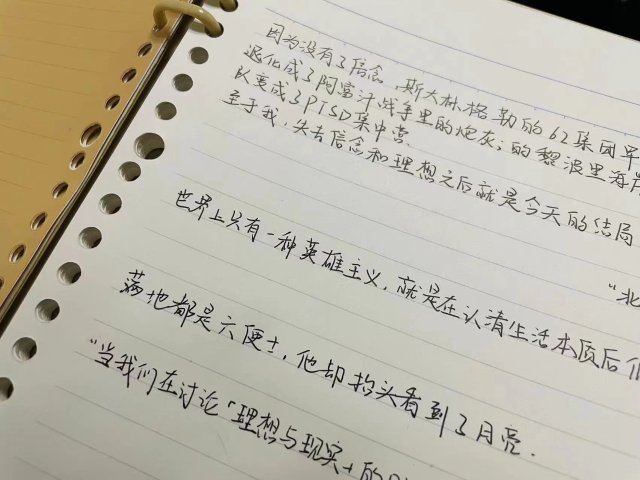 因为没有了信念，斯大林格勒的62集团军
退化成了阿富汗战争里的炮灰；的黎波里海岸
以变成了PTSD集中营.
至于我，失去信念和理想之后就是今天的结局
"北
世界上只有一种英雄主义，就是在认清生活本质后
满地都是六便士，他却抬头看到了月亮.
"当我们在讨论「理想与现实」的